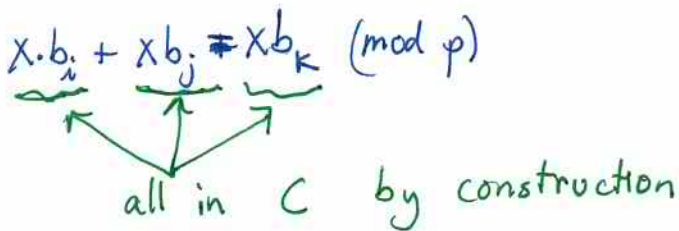 x·b_i + xb_j = xb_k (mod p)
all in C by construction